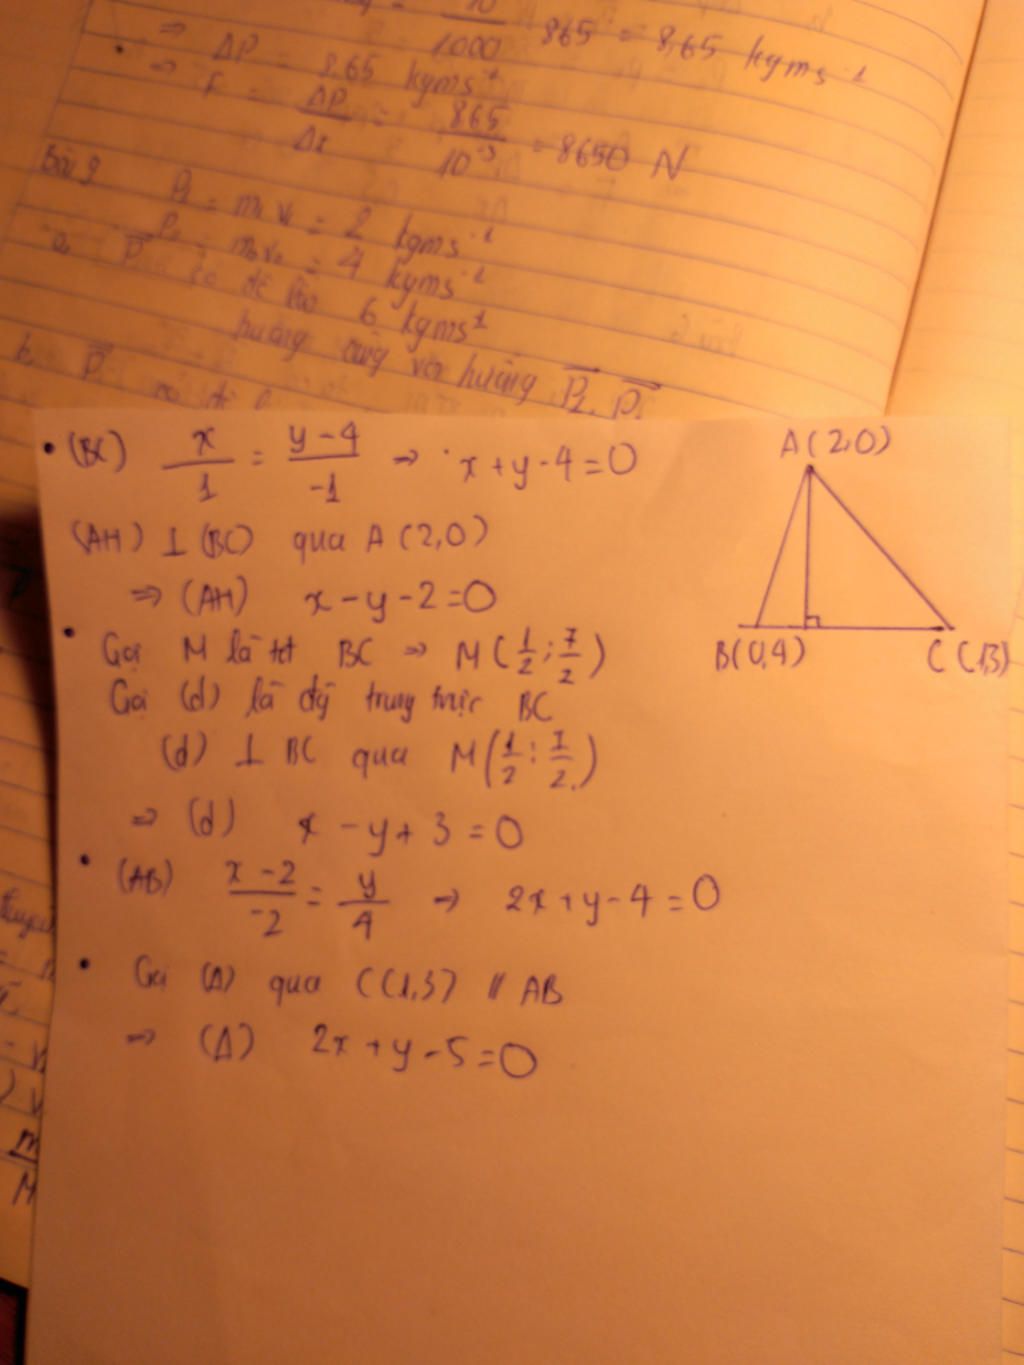 10
1000
⇒ 865 = 8,65 kgms⁻¹
ΔP = 8,65 kgms⁻¹
⇒ F = ΔP/Δt = 865/10⁻³ = 8650 N
Bài 9
P₁ = m₁v₁ = 2 kgms⁻¹
P₂ = m₂v₂ = 4 kgms⁻¹
a. P có độ lớn 6 kgms⁻¹
hướng cùng với hướng P₁, P
b. P có độ
• (BC) x/1 = (y-4)/-1 ⇒ x+y-4=0
A(2,0)
(AH) ⊥ (BC) qua A(2,0)
⇒ (AH) x-y-2=0
• Gọi M là tđ BC ⇒ M(1/2;7/2)
B(0,4) C(1,3)
Gọi (d) là đg trung trực BC
(d) ⊥ BC qua M(1/2;7/2)
⇒ (d) x-y+3=0
• (AB) (x-2)/-2 = y/4 ⇒ 2x+y-4=0
• Gọi (Δ) qua C(1,3) // AB
⇒ (Δ) 2x+y-5=0
m
M